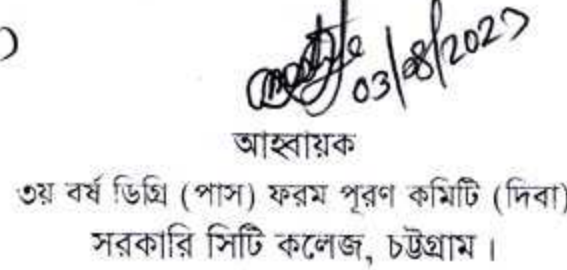 03/08/2023
আহবায়ক
৩য় বর্ষ ডিগ্রি (পাস) ফরম পূরণ কমিটি (দিবা)
সরকারি সিটি কলেজ, চট্টগ্রাম।